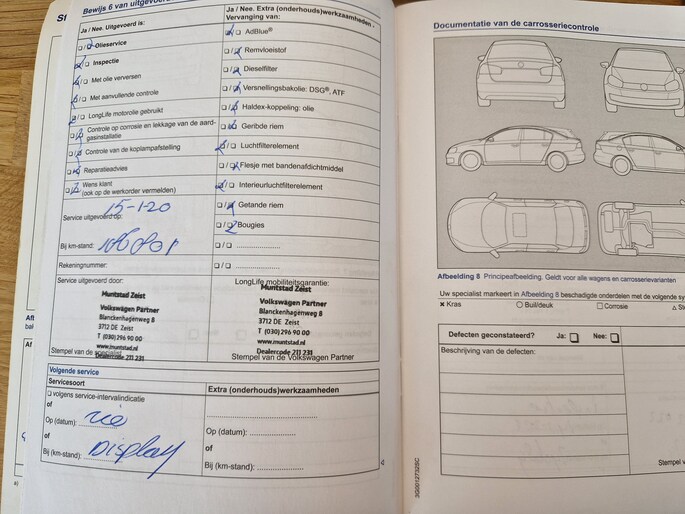 Bewijs 6 van uitgevoerd
Ja / Nee. Uitgevoerd is:
Olieservice
Inspectie
Met olie verversen
Met aanvullende controle
LongLife motorolie gebruikt
Controle op corrosie en lekkage van de aard-
gasinstallatie
Controle van de koplampafstelling
Reparatieadvies
Wens klant
(ook op de werkorder vermelden)
Service uitgevoerd op:
15-1-20
Bij km-stand:
Rekeningnummer:
Service uitgevoerd door:
Muntstad Zeist
Volkswagen Partner
Blanckenhagenweg 8
3712 DE Zeist
T (030) 296 90 00
www.muntstad.nl
Dealercode 211 231
Stempel van de specialist
Ja / Nee. Extra (onderhouds)werkzaamheden -
Vervanging van:
AdBlue®
Remvloeistof
Dieselfilter
Versnellingsbakolie: DSG®, ATF
Haldex-koppeling: olie
Geribde riem
Luchtfilterelement
Flesje met bandenafdichtmiddel
Interieurluchtfilterelement
Getande riem
Bougies
LongLife mobiliteitsgarantie:
Muntstad Zeist
Volkswagen Partner
Blanckenhagenweg 8
3712 DE Zeist
T (030) 296 90 00
www.muntstad.nl
Dealercode 211 231
Stempel van de Volkswagen Partner
Volgende service
Servicesoort
volgens service-intervalindicatie
of
Op (datum): zie
of
Bij (km-stand): Display
Extra (onderhouds)werkzaamheden
Op (datum):
of
Bij (km-stand):
Documentatie van de carrosseriecontrole
Afbeelding 8 Principeafbeelding. Geldt voor alle wagens en carrosserievarianten
Uw specialist markeert in Afbeelding 8 beschadigde onderdelen met de volgende
Kras
Buil/deuk
Corrosie
Defecten geconstateerd?
Ja:
Nee:
Beschrijving van de defecten:
Stempel
3G0012732SC